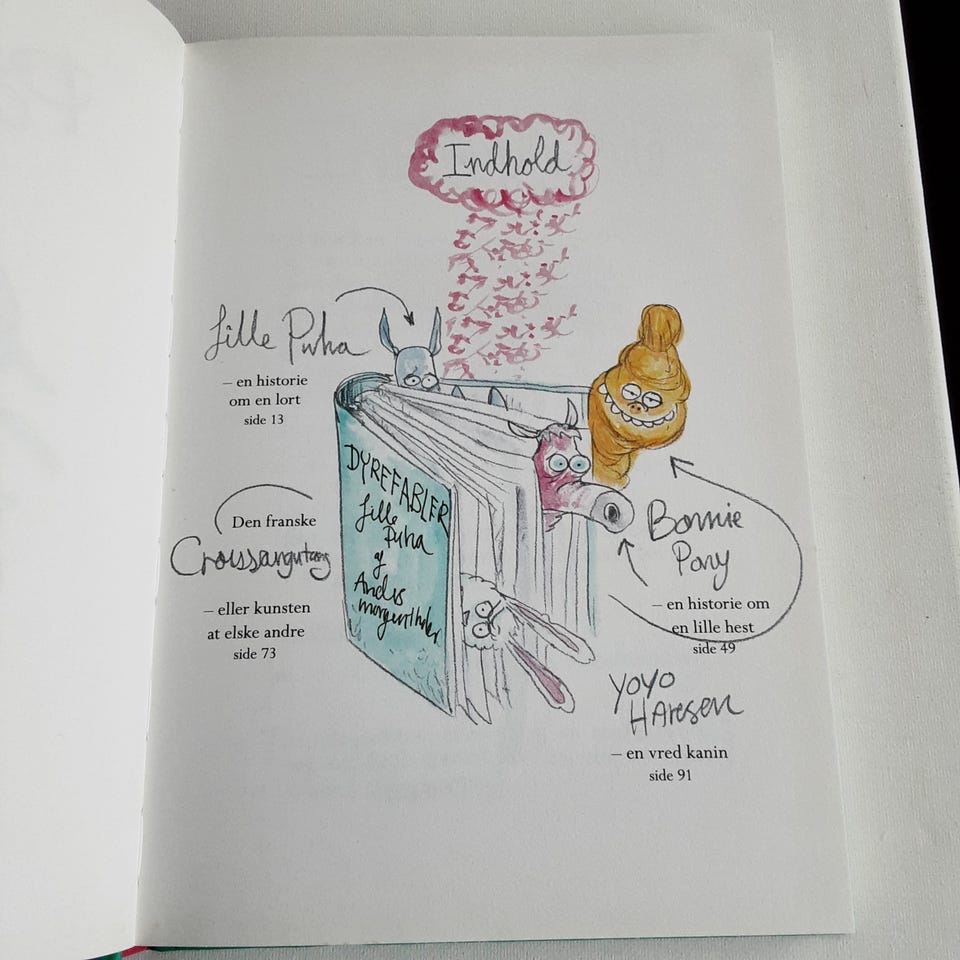 Indhold
Lille Puha
– en historie
om en lort
side 13
DYREFABLER
Lille
Puha
af
Anders
morgenthaler
Den franske
Croissangutang
– eller kunsten
at elske andre
side 73
Bonnie
Pony
– en historie om
en lille hest
side 49
YOYO
HAresen
– en vred kanin
side 91